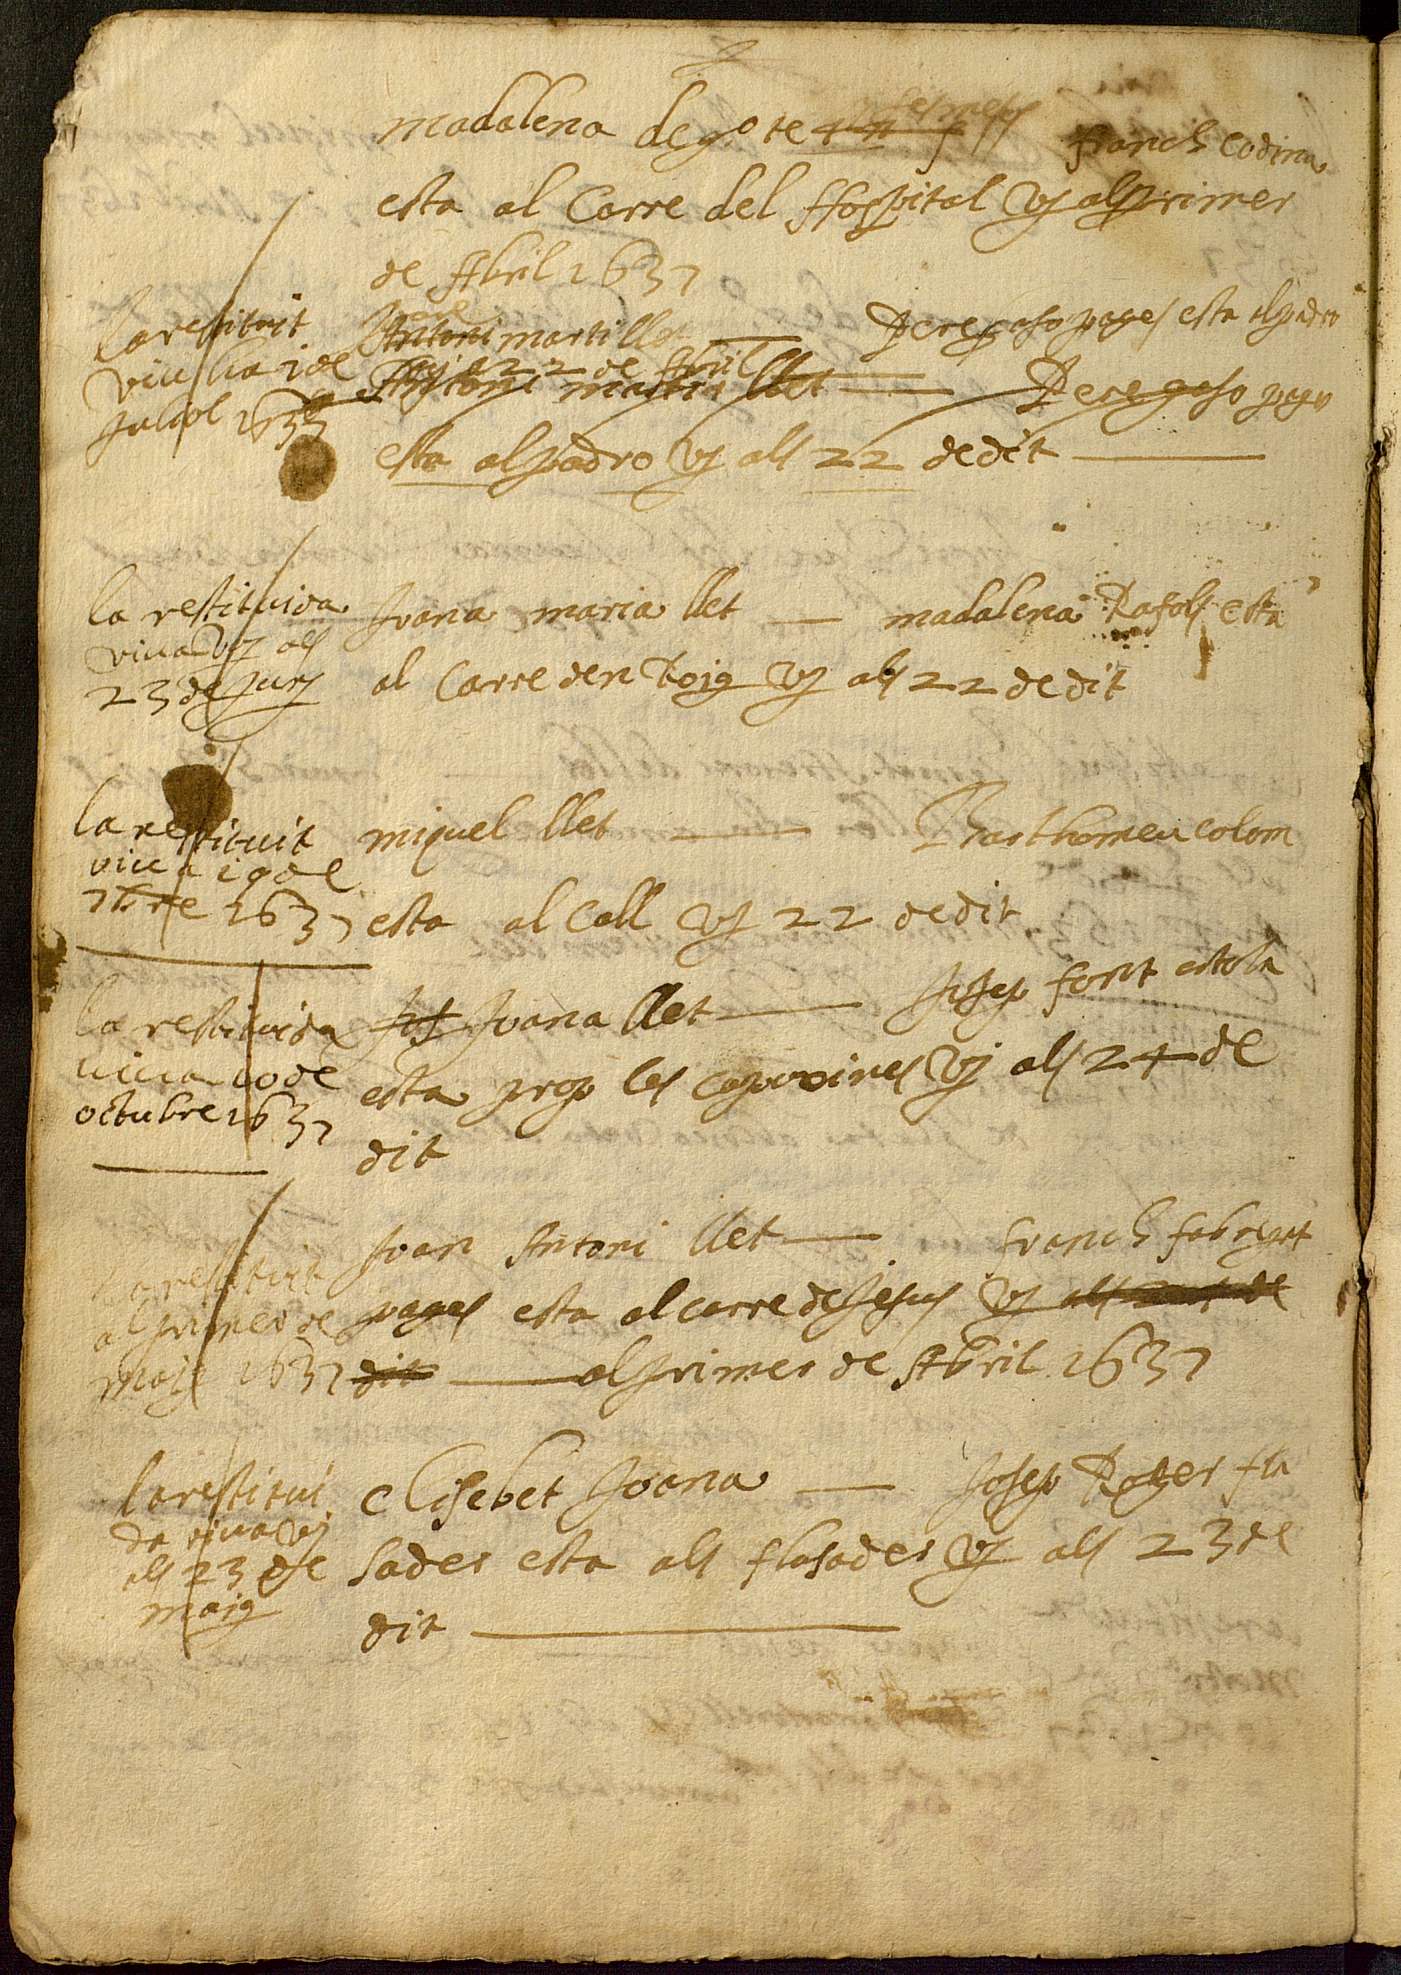 madalena de go te franch codina
esta al Carre del Hospital vj al primer
de Abril 1637
la restituit
viu lia 1 de
Juliol 1637
Antoni marti llet — Pere gaso pages esta al padro
vj a 22 de Abril
Antoni marti llet — Pere gaso pages
esta al padro vj als 22 de dit —
la restituida
viua vj als
23 de Juny
Joana maria llet — madalena Rafols esta
al Carre den Roig vj als 22 de dit
la restituit
viu a 19 de
7bre 1637
miquel llet — Barthomeu colom
esta al Call vj 22 de dit
la restituida
viua 10 de
octubre 1637
Jos Joana llet — Josep font esta la
esta prop les capuxines vj als 24 de
dit
la restituit
al primer de
maig 1637
Joan Antoni llet — franch fabregat
pages esta al carre de Jesus vj als de
dit — al primer de Abril 1637
la restitui
da viua vj
als 23 de
maig
elisebet Joana — Josep Roger fla
sader esta als flasader vj als 23 de
dit —